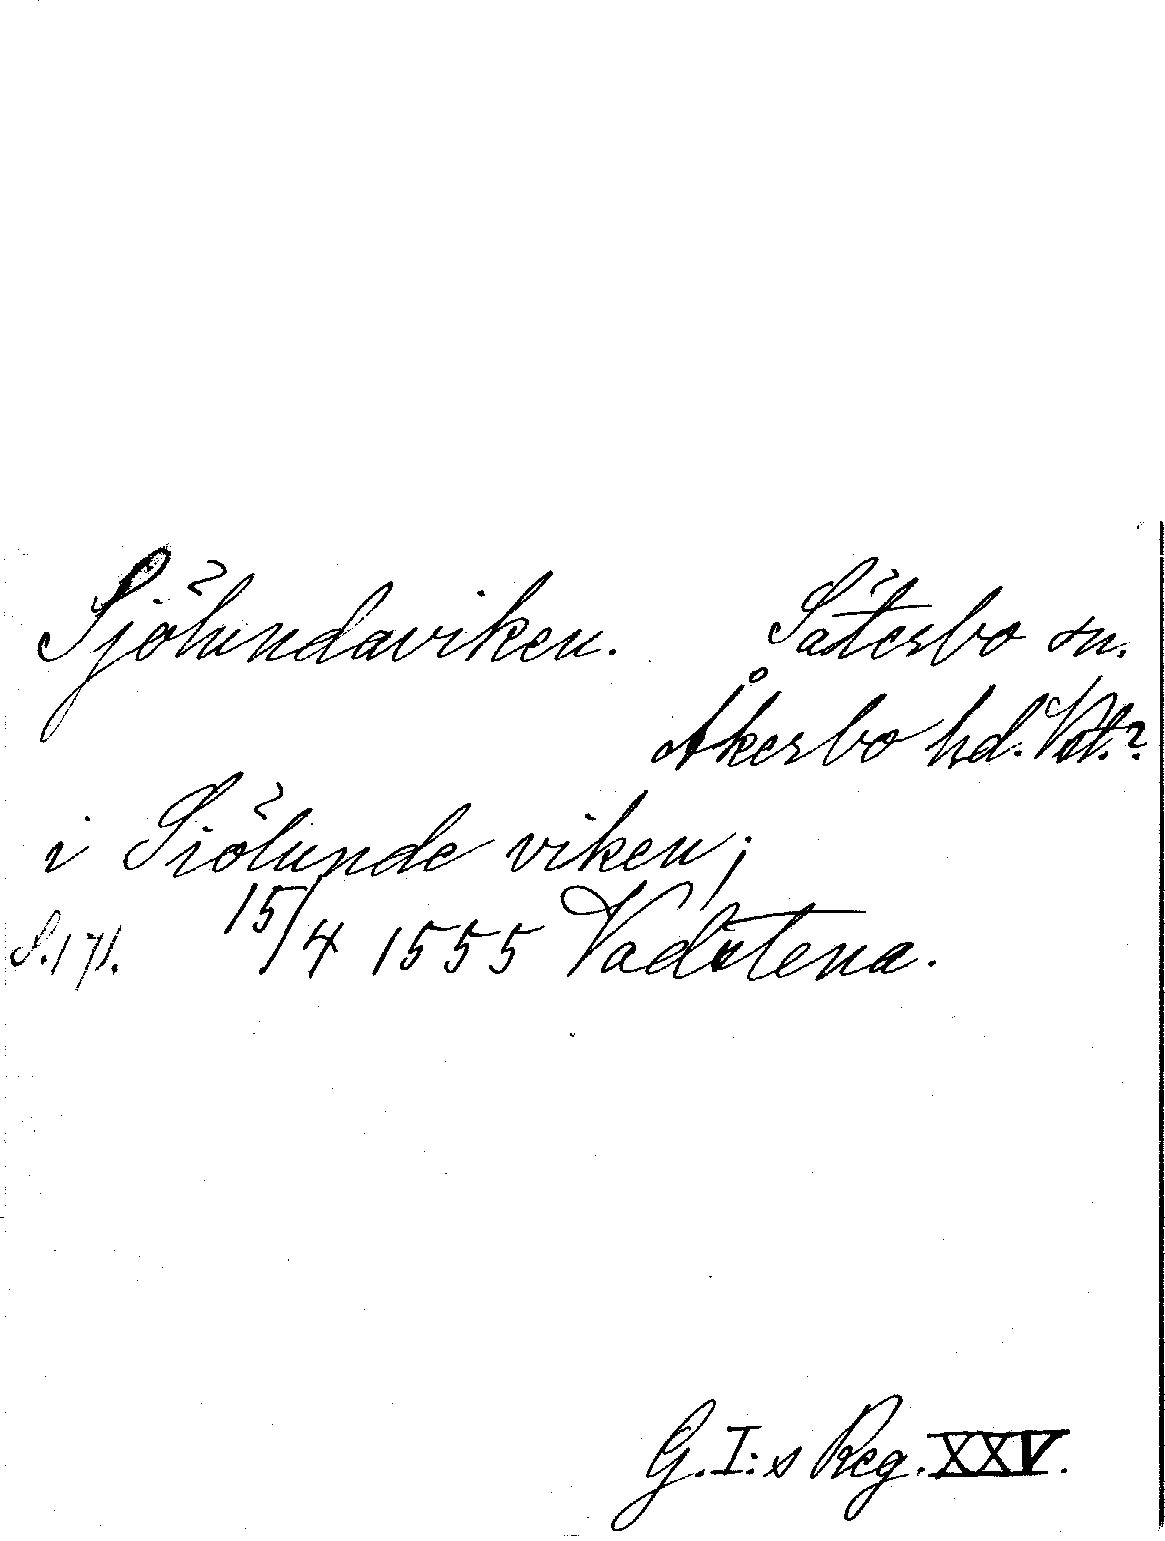 Sjölundaviken. Säterbo sn.
Åkerbo hd. Vstl.?
i Siölunde viken;
S. 171. 15/4 1555 Vadstena.
G. I:s Reg. XXV.